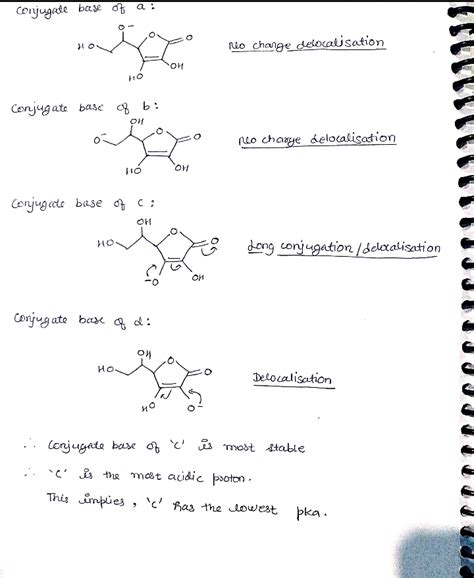 Conjugate base of a :
O⁻
HO
O
O
HO
OH
No charge delocalisation
Conjugate base of b :
OH
O⁻
O
O
HO
OH
No charge delocalisation
Conjugate base of c :
OH
HO
O
O
⁻O
OH
Long conjugation/delocalisation
Conjugate base of d :
OH
HO
O
O
HO
O⁻
Delocalisation
∴ Conjugate base of 'c' is most stable
∴ 'c' is the most acidic proton.
This implies, 'c' has the lowest pka.